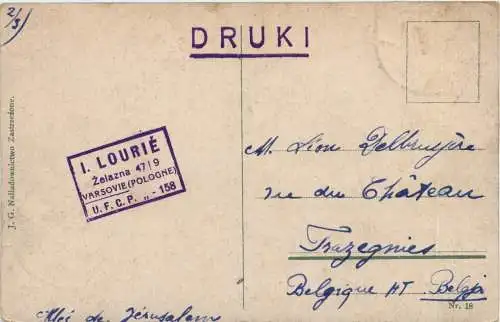 2/3)
DRUKI
J. G. Nakładownictwo Zastrzeżone.
I. LOURIÉ
Żelazna 47/9
VARSOVIE (POLOGNE)
U. F. C. P. „ - 158
M. Léon Delbruyère
rue du Château
Trazegnies
Belgique HT. Belgja
Nr. 18
Aleé de Jérusalem